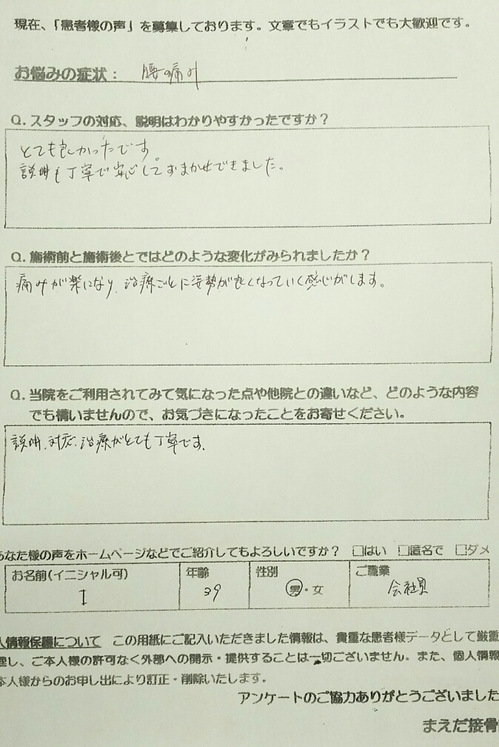 現在、「患者様の声」を募集しております。文章でもイラストでも大歓迎です。
お悩みの症状： 腰の痛み
Q. スタッフの対応、説明はわかりやすかったですか？
とても良かったです。
説明も丁寧で安心しておまかせできました。
Q. 施術前と施術後とではどのような変化がみられましたか？
痛みが楽になり、治療ごとに姿勢が良くなっていく感じがします。
Q. 当院をご利用されてみて気になった点や他院との違いなど、どのような内容
でも構いませんので、お気づきになったことをお寄せください。
説明、対応、治療がとても丁寧です。
あなた様の声をホームページなどでご紹介してもよろしいですか？ □はい □匿名で □ダメ
お名前(イニシャル可) 年齢 性別 ご職業
I 39 男・女 会社員
人情報保護について この用紙にご記入いただきました情報は、貴重な患者様データとして厳重
理し、ご本人様の許可なく外部への開示・提供することは一切ございません。また、個人情報
本人様からのお申し出により訂正・削除いたします。
アンケートのご協力ありがとうございました
まえだ接骨